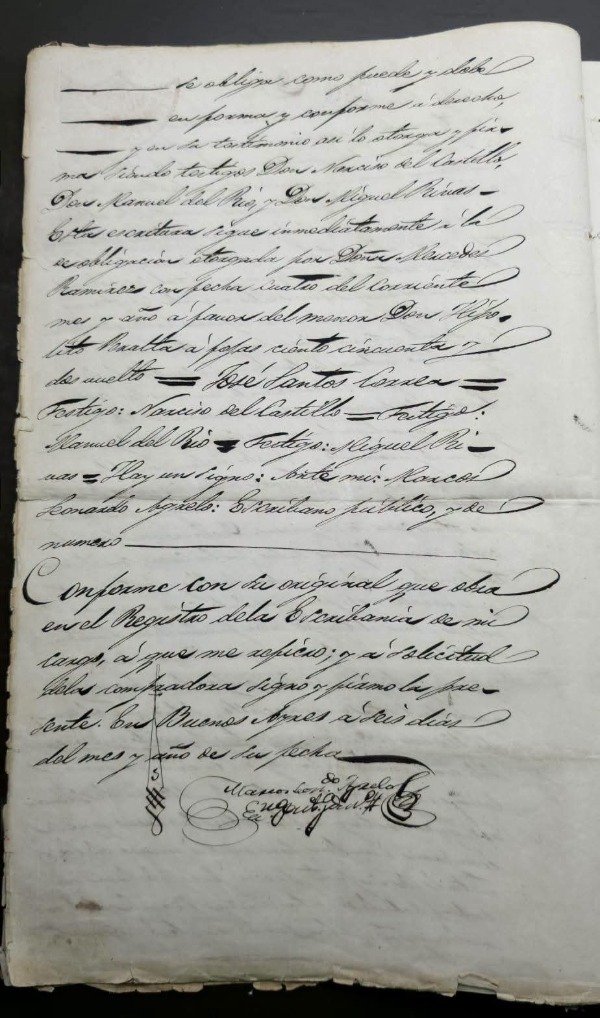 se obliga como puede y debe
en forma y conforme á derecho,
y en su testimonio asi lo otorga y fir-
ma siendo testigos Don Narciso del Castillo,
Don Manuel del Rio, y Don Miguel Rivas -
Esta escritura sigue inmediatamente á la
de obligacion otorgada por Doña Mercedes
Ramirez con fecha cuatro del corriente
mes y año á favor del menor Don Hipo-
lito Peralta á fojas ciento cincuenta y
dos vuelto = José Santos Correa =
Testigo: Narciso del Castillo = Testigo:
Manuel del Rio = Testigo: Miguel Ri-
vas = Hay un signo: Ante mi: Marcos
Leonardo Agrelo: Escribano público, y de
numero
Conforme con su original que obra
en el Registro dela Escribania de mi
cargo, á que me refiero; y á solicitud
dela compradora signo y firmo la pre-
sente. En Buenos Ayres á seis dias
del mes y año de su fecha
Marcos Leon.do Agrelo